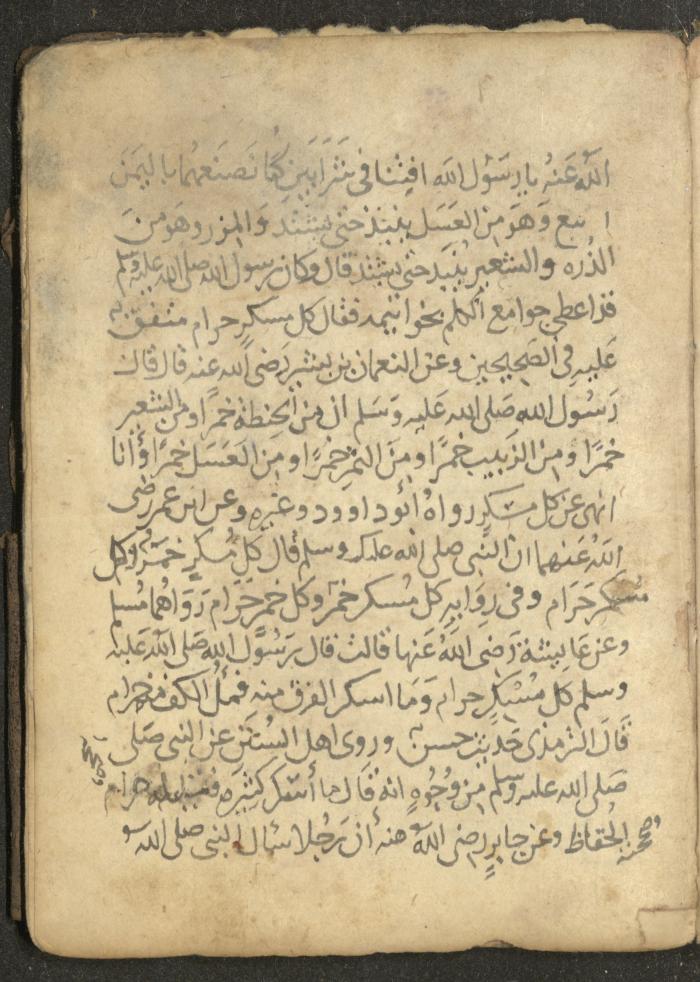 الله عَنهُ يا رسَوُل الله افِتنا في شَرَابَين كُنا نَصنَعهُما باليمَن
البتع وَهوَ مِن العَسَل ينبَذ حَتى يشتد وَالمزر وهَو منَ
الذُره والشعير يُنبَذ حَتى يشتد قال وكان رسول الله صَلى الله عليه وسلم
قد اعطي جوامع الكلم بخواتيمه فقال كل مسكر حرام متفق
عَليهِ في الصَحيحين وعن النعمان بن بشير رَضى الله عنه قال قال
رَسُول الله صَلى الله عَليهِ وَسَلم ان من الحنطة خمرًا ومن الشعير
خمرًا ومِن الزَبيب خمرًا ومنَ التمر خمرًا ومنَ العَسَل خمرًا وأنا
انهى عن كل مسكرٍ رواهُ أبُو داوود وغيره وعن ابن عمر رضى
اللهُ عَنهما ان النبى صلى الله عليه وسلم قال كل مُسكرٍ خمرٌ وكل
مُسكر حَرَام وفى رِوَايه كل مُسكر خمرٌ وكل خمر حَرَام رَوَاهُما مُسلم
وعن عَايشة رَضى اللهُ عَنها قالت قال رَسُول الله صَلى الله عَليه
وسلم كل مُسْكرٍ حرام وَمَا اسكر الفرق منه فملُ الكف منه حرام
قَالَ الترمذى حَديث حسن وروى اهل السُنَن عن النبى صَلى
صَلى الله عليه وَسلم مِن وُجُوهٍ انه قَال ما أسكر كثيَره فقليله حرام
وصححه الحُفاظ وعن جابرٍ رضى الله عنه أن رَجُلا سَال النبى صَلى الله